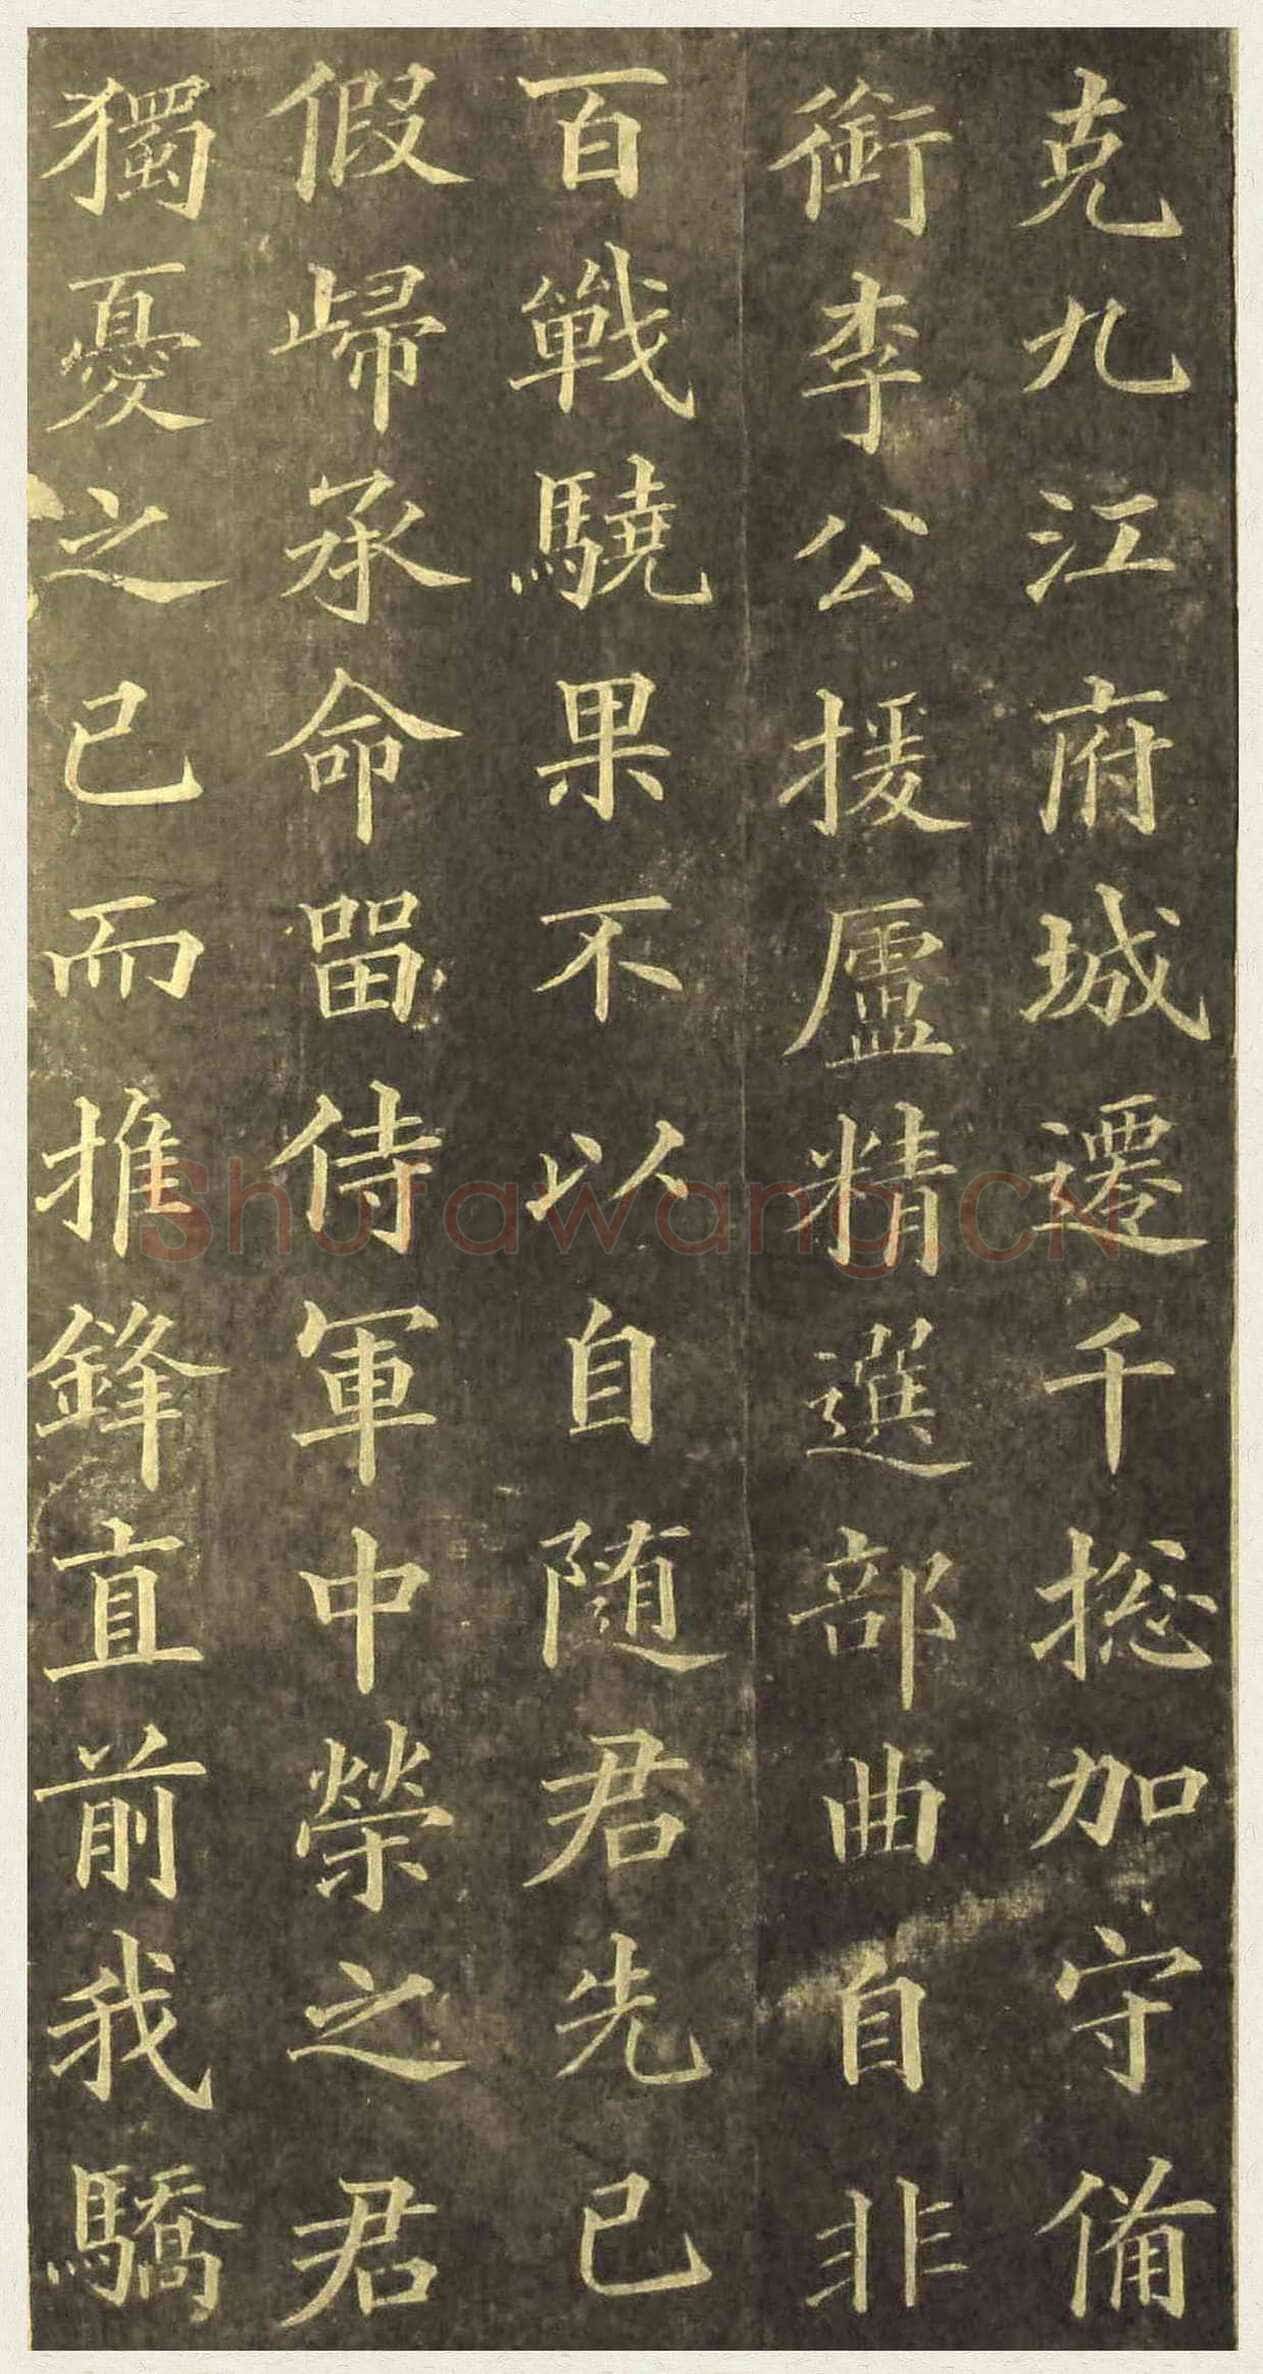 克九江府城遷千捴加守俻
銜李公援廬精選部曲自非
百戰驍果不以自随君先已
假歸承命留侍軍中榮之君
獨憂之已而推鋒直前我驕
Shufawang.CN